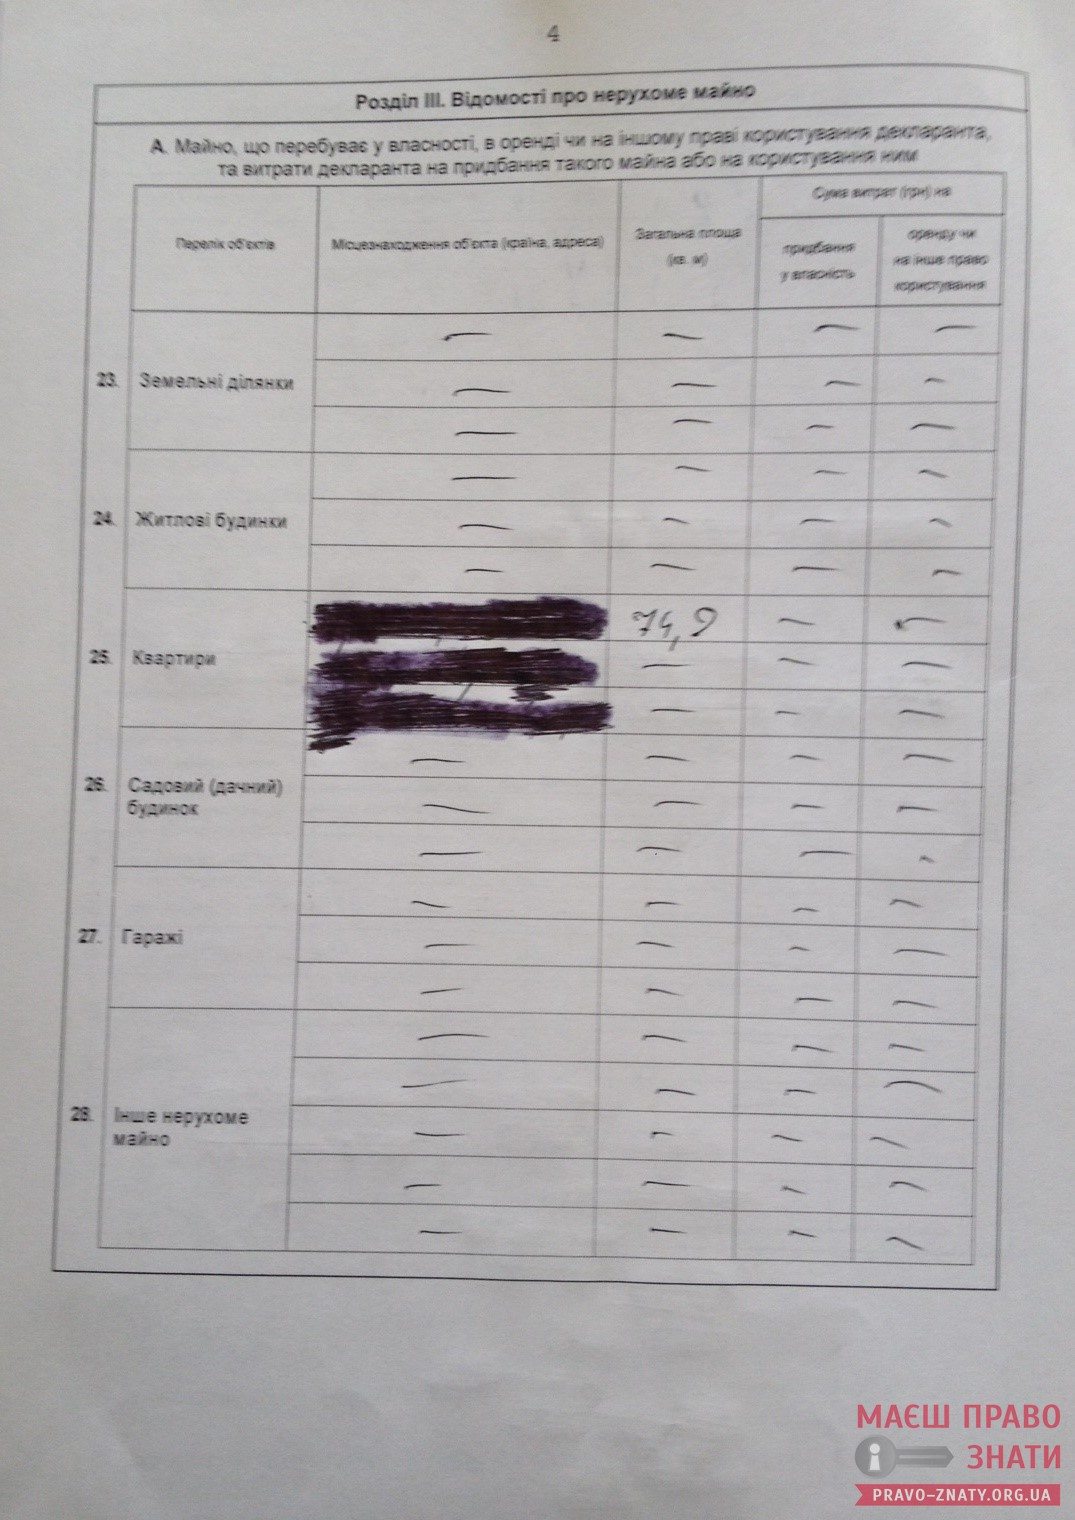 4
Розділ III. Відомості про нерухоме майно
А. Майно, що перебуває у власності, в оренді чи на іншому праві користування декларанта,
та витрати декларанта на придбання такого майна або на користування ним
Перелік об'єктів
Місцезнаходження об'єкта (країна, адреса)
Загальна площа
(кв. м)
Сума витрат (грн) на
придбання
у власність
оренду чи
на інше право
користування
23. Земельні ділянки
24. Житлові будинки
25. Квартири
74,9
26. Садовий (дачний)
будинок
27. Гаражі
28. Інше нерухоме
майно
МАЄШ ПРАВО
ЗНАТИ
PRAVO-ZNATY.ORG.UA